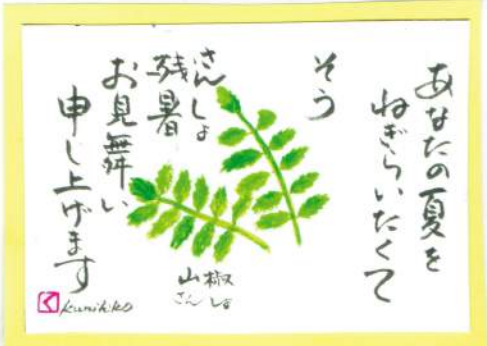 あなたの夏を
ねぎらいたくて
そう
さんしょ
残暑
お見舞い
申し上げます
山椒
さんしょ
く Kunihiko